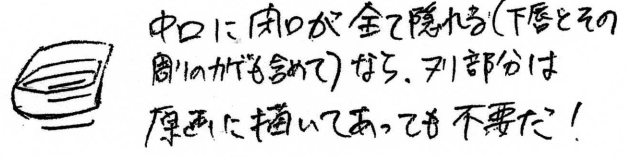 中口に閉口が全て隠れる(下唇とその
周りのカゲも含めて)なら、ヌリ部分は
原画に描いてあっても不要だ!